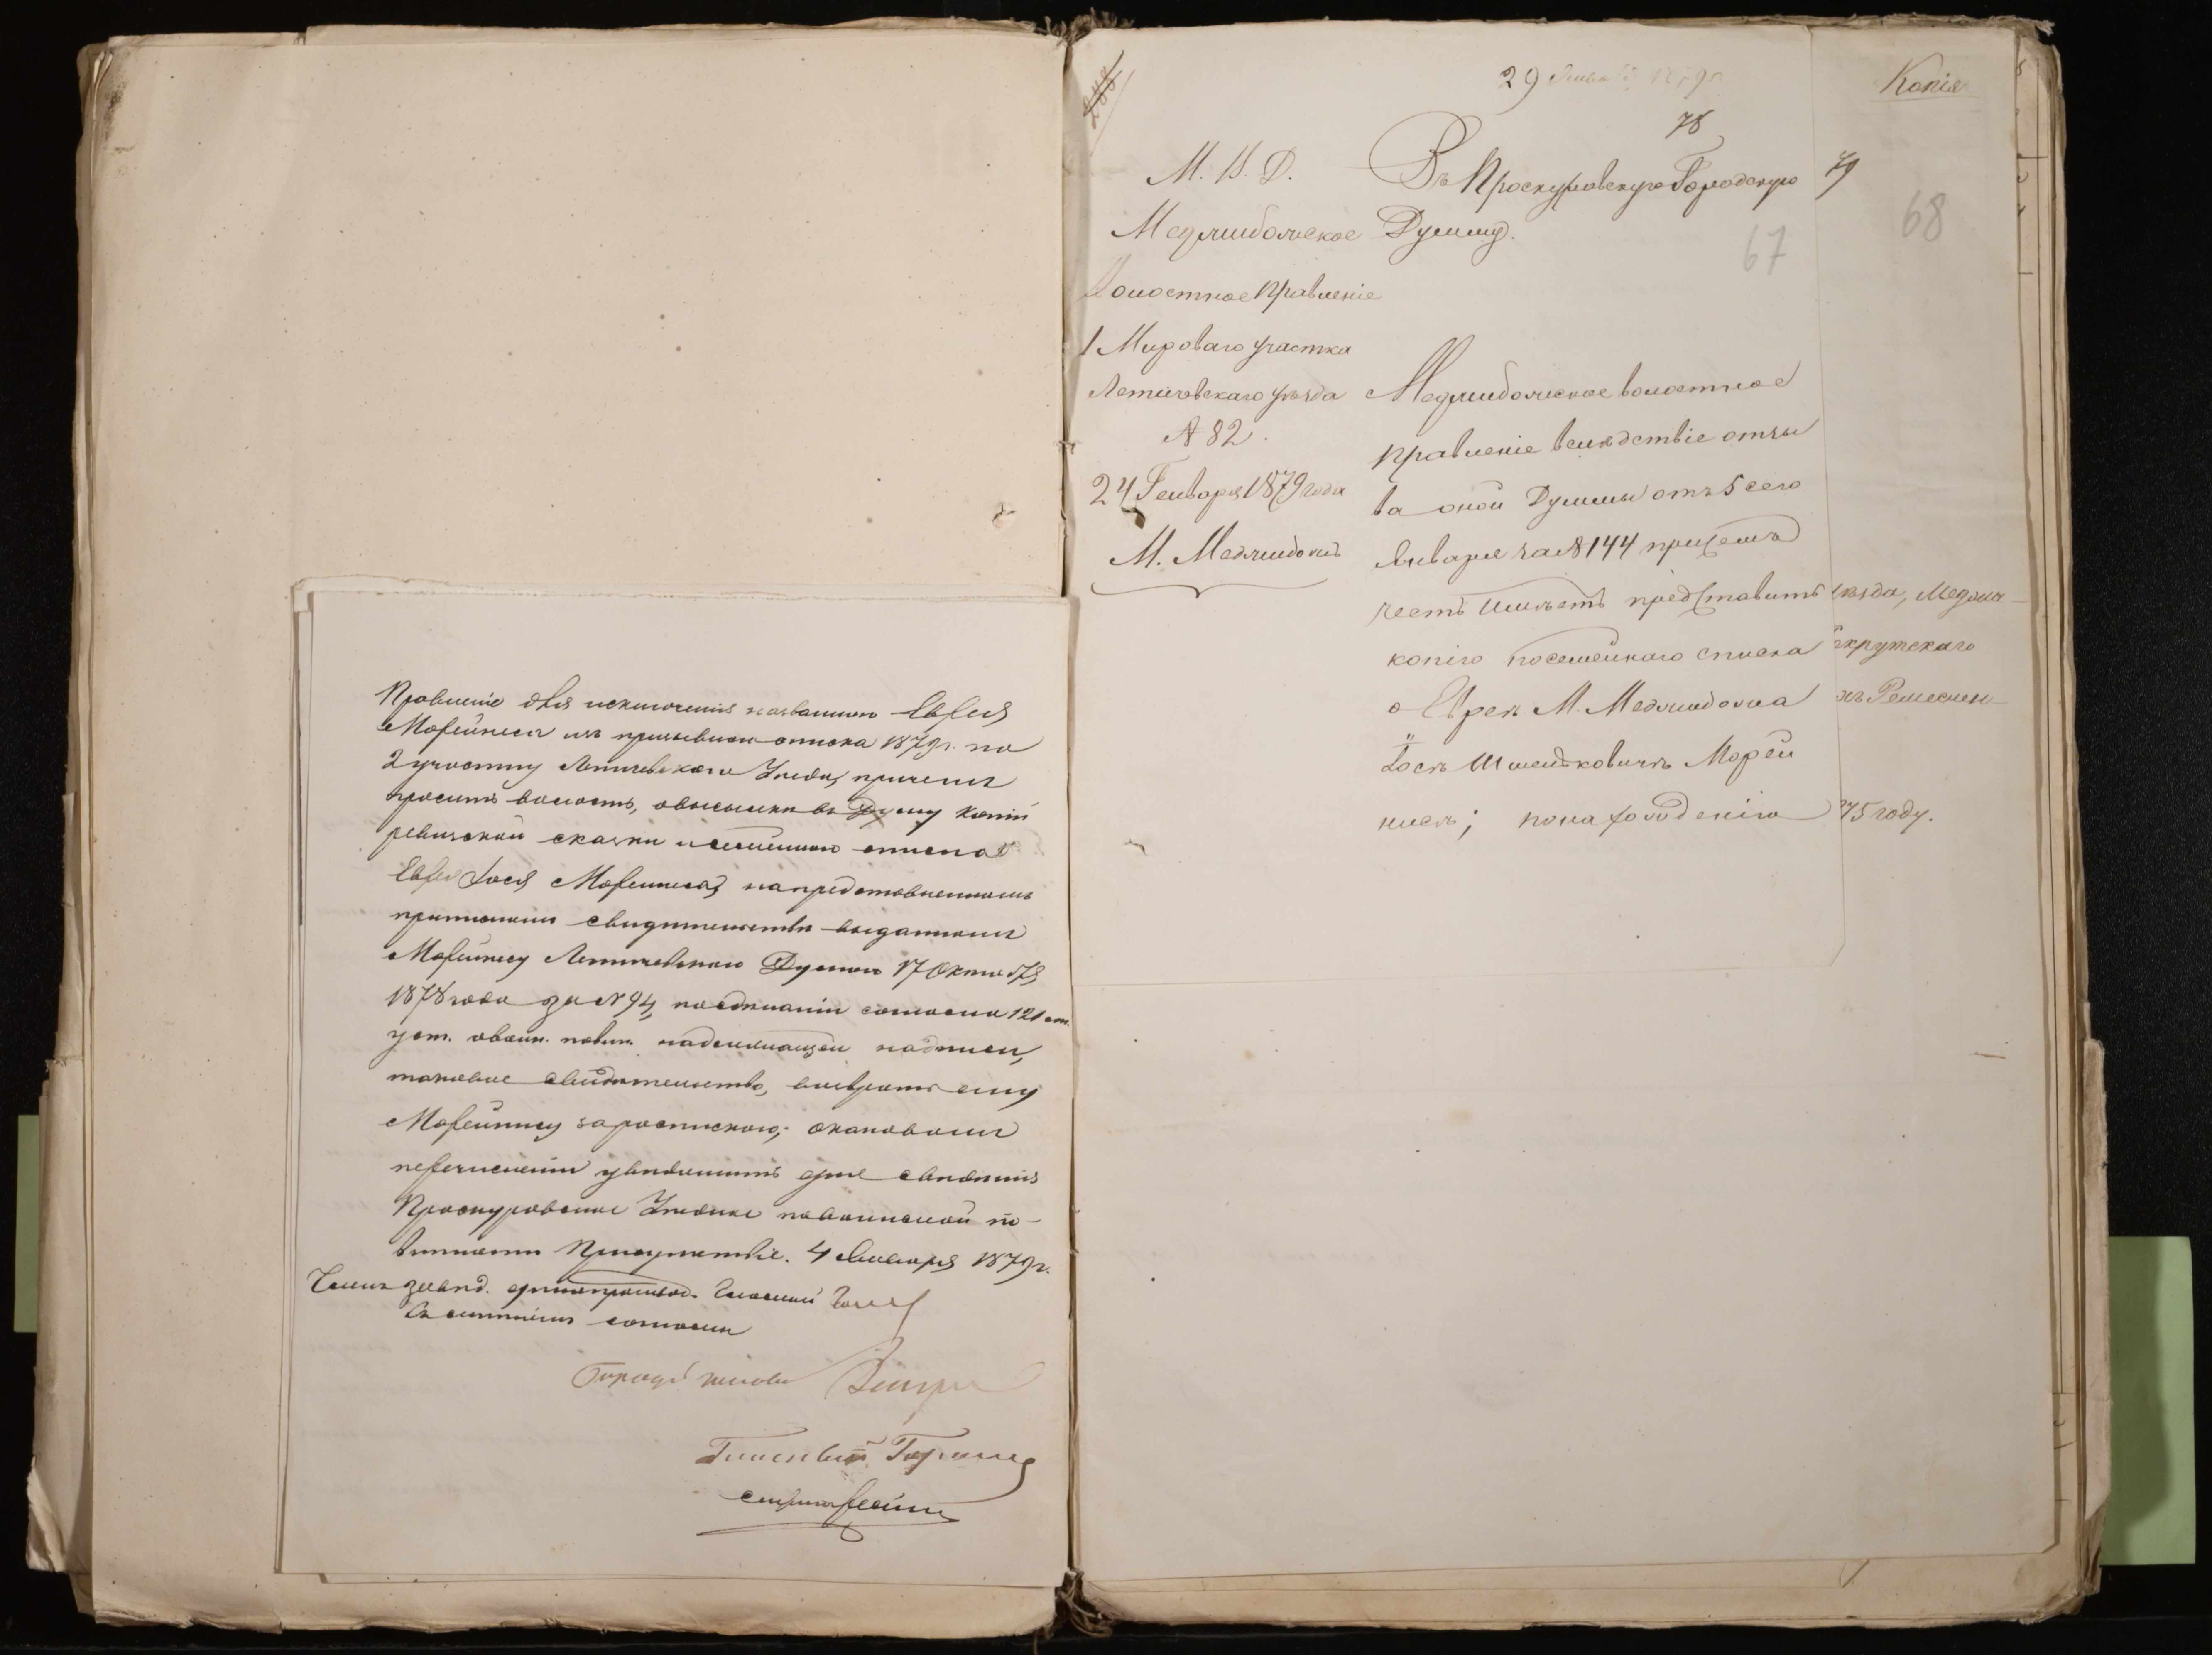 Правленіе для исключенія названнаго Еврея
Морейниса изъ призывнаго списка 1879 г. по
2 участку Летичевскаго Уѣзда, причемъ
просить волость, о высылкѣ въ Думу копіи
ревизской сказки и семейнаго списка
Еврея Іося Морейниса, на представленномъ
свидѣтельствѣ выданномъ
Морейнису Летичевскою Думою 17 Октября
1878 года за № 94, по сдѣланіи согласно 121 ст.
уст. о воин. повин. надлежащей надписи,
таковое свидѣтельство, возвратить ему
Морейнису за роспискою; о каковомъ
перечисленіи увѣдомить для свѣденія
Проскуровское Уѣздное по воинской по-
винности Присутствіе. 4 Января 1879 г.
Гласный
согласны
288
29 Января 1879 г.
78
М. В. Д.
Меджибожское
Волостное Правленіе
1 Мироваго участка
Летичевскаго уѣзда
№ 82.
24 Генваря 1879 года
М. Меджибожъ
Въ Проскуровскую Городскую
Думму.
67
Меджибожское волостное
правленіе вслѣдствіе отзы
ва оной Думмы отъ 5 сего
Января за № 144 при семъ
честь имѣетъ представить
копію посемейнаго списка
о Евреѣ М. Меджибожа
Іосѣ Шмельковичѣ Морей
нисѣ; по нахожденію
Копія
79
68
уѣзда, Меджи-
екрутскаго
Ремеслен-
75 году.